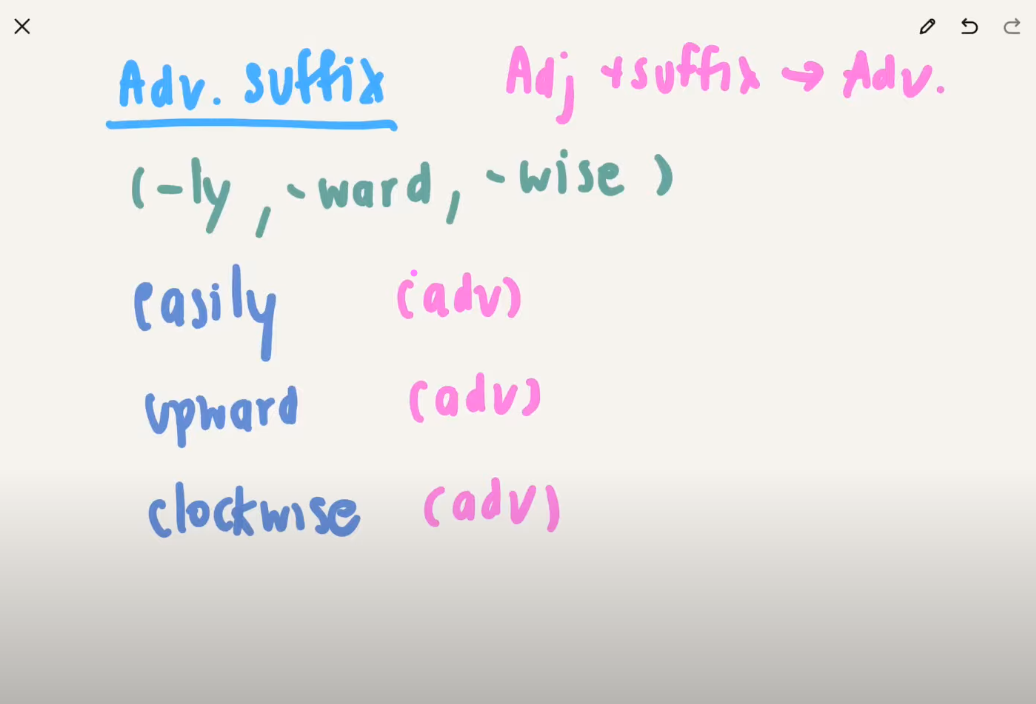 Adv. suffix Adj +suffix → Adv.
(-ly, -ward, -wise)
easily (adv)
upward (adv)
clockwise (adv)